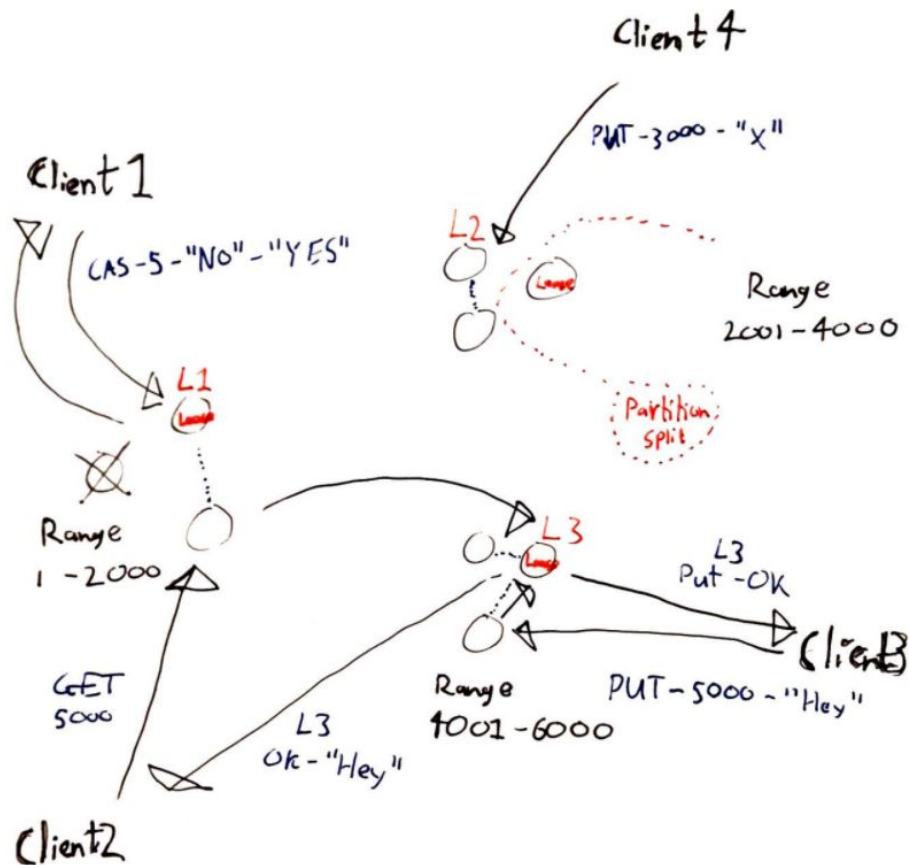 Client 4
PUT-3000-"X"
Client 1
CAS-5-"NO"-"YES"
L2
Range
2001-4000
L1
Partition
split
Range
1-2000
L3
L3
Put-OK
Client3
GET
5000
Range
4001-6000
PUT-5000-"Hey"
L3
OK-"Hey"
Client2